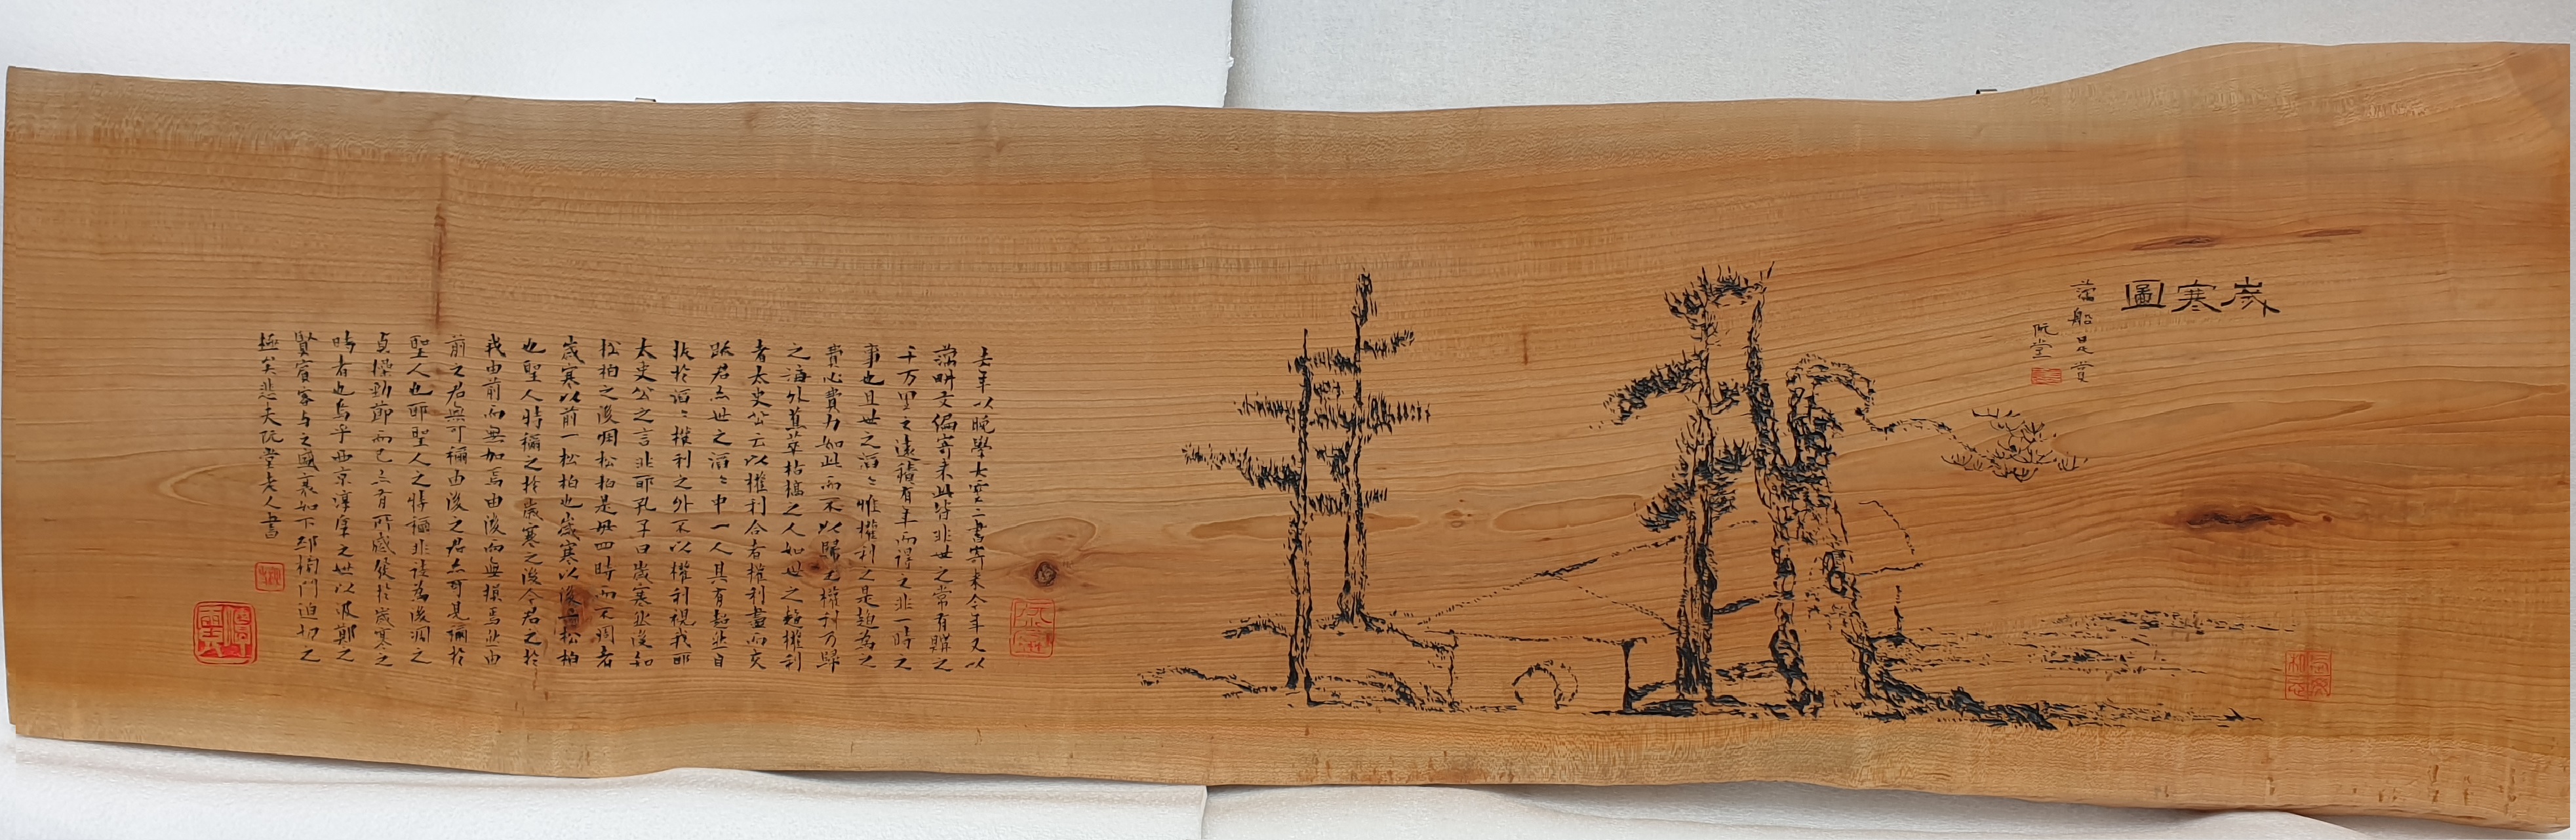 歲寒圖
藕船是賞
阮堂
去年以晚學大雲二書寄來今年又以
藕畊文編寄來此皆非世之常有購之
千万里之遠積有年而得之非一時之
事也且世之滔〻惟權利之是趨為之
費心費力如此而不以歸之權利乃歸
之海外蕉萃枯槁之人如世之趨權利
者太史公云以權利合者權利盡而交
踈君亦世之滔〻中一人其有超然自
拔於滔〻權利之外不以權利視我耶
太史公之言非耶孔子曰歲寒然後知
松柏之後凋松柏是毋四時而不凋者
歲寒以前一松柏也歲寒以後一松柏
也聖人特稱之於歲寒之後今君之於
我由前而無加焉由後而無損焉然由
前之君無可稱由後之君亦可見稱於
聖人也耶聖人之特稱非徒為後凋之
貞操勁節而已亦有所感發於歲寒之
時者也烏乎西京淳厚之世以汲鄭之
賢賓客与之盛衰如下邳榜門迫切之
極矣悲夫阮堂老人書